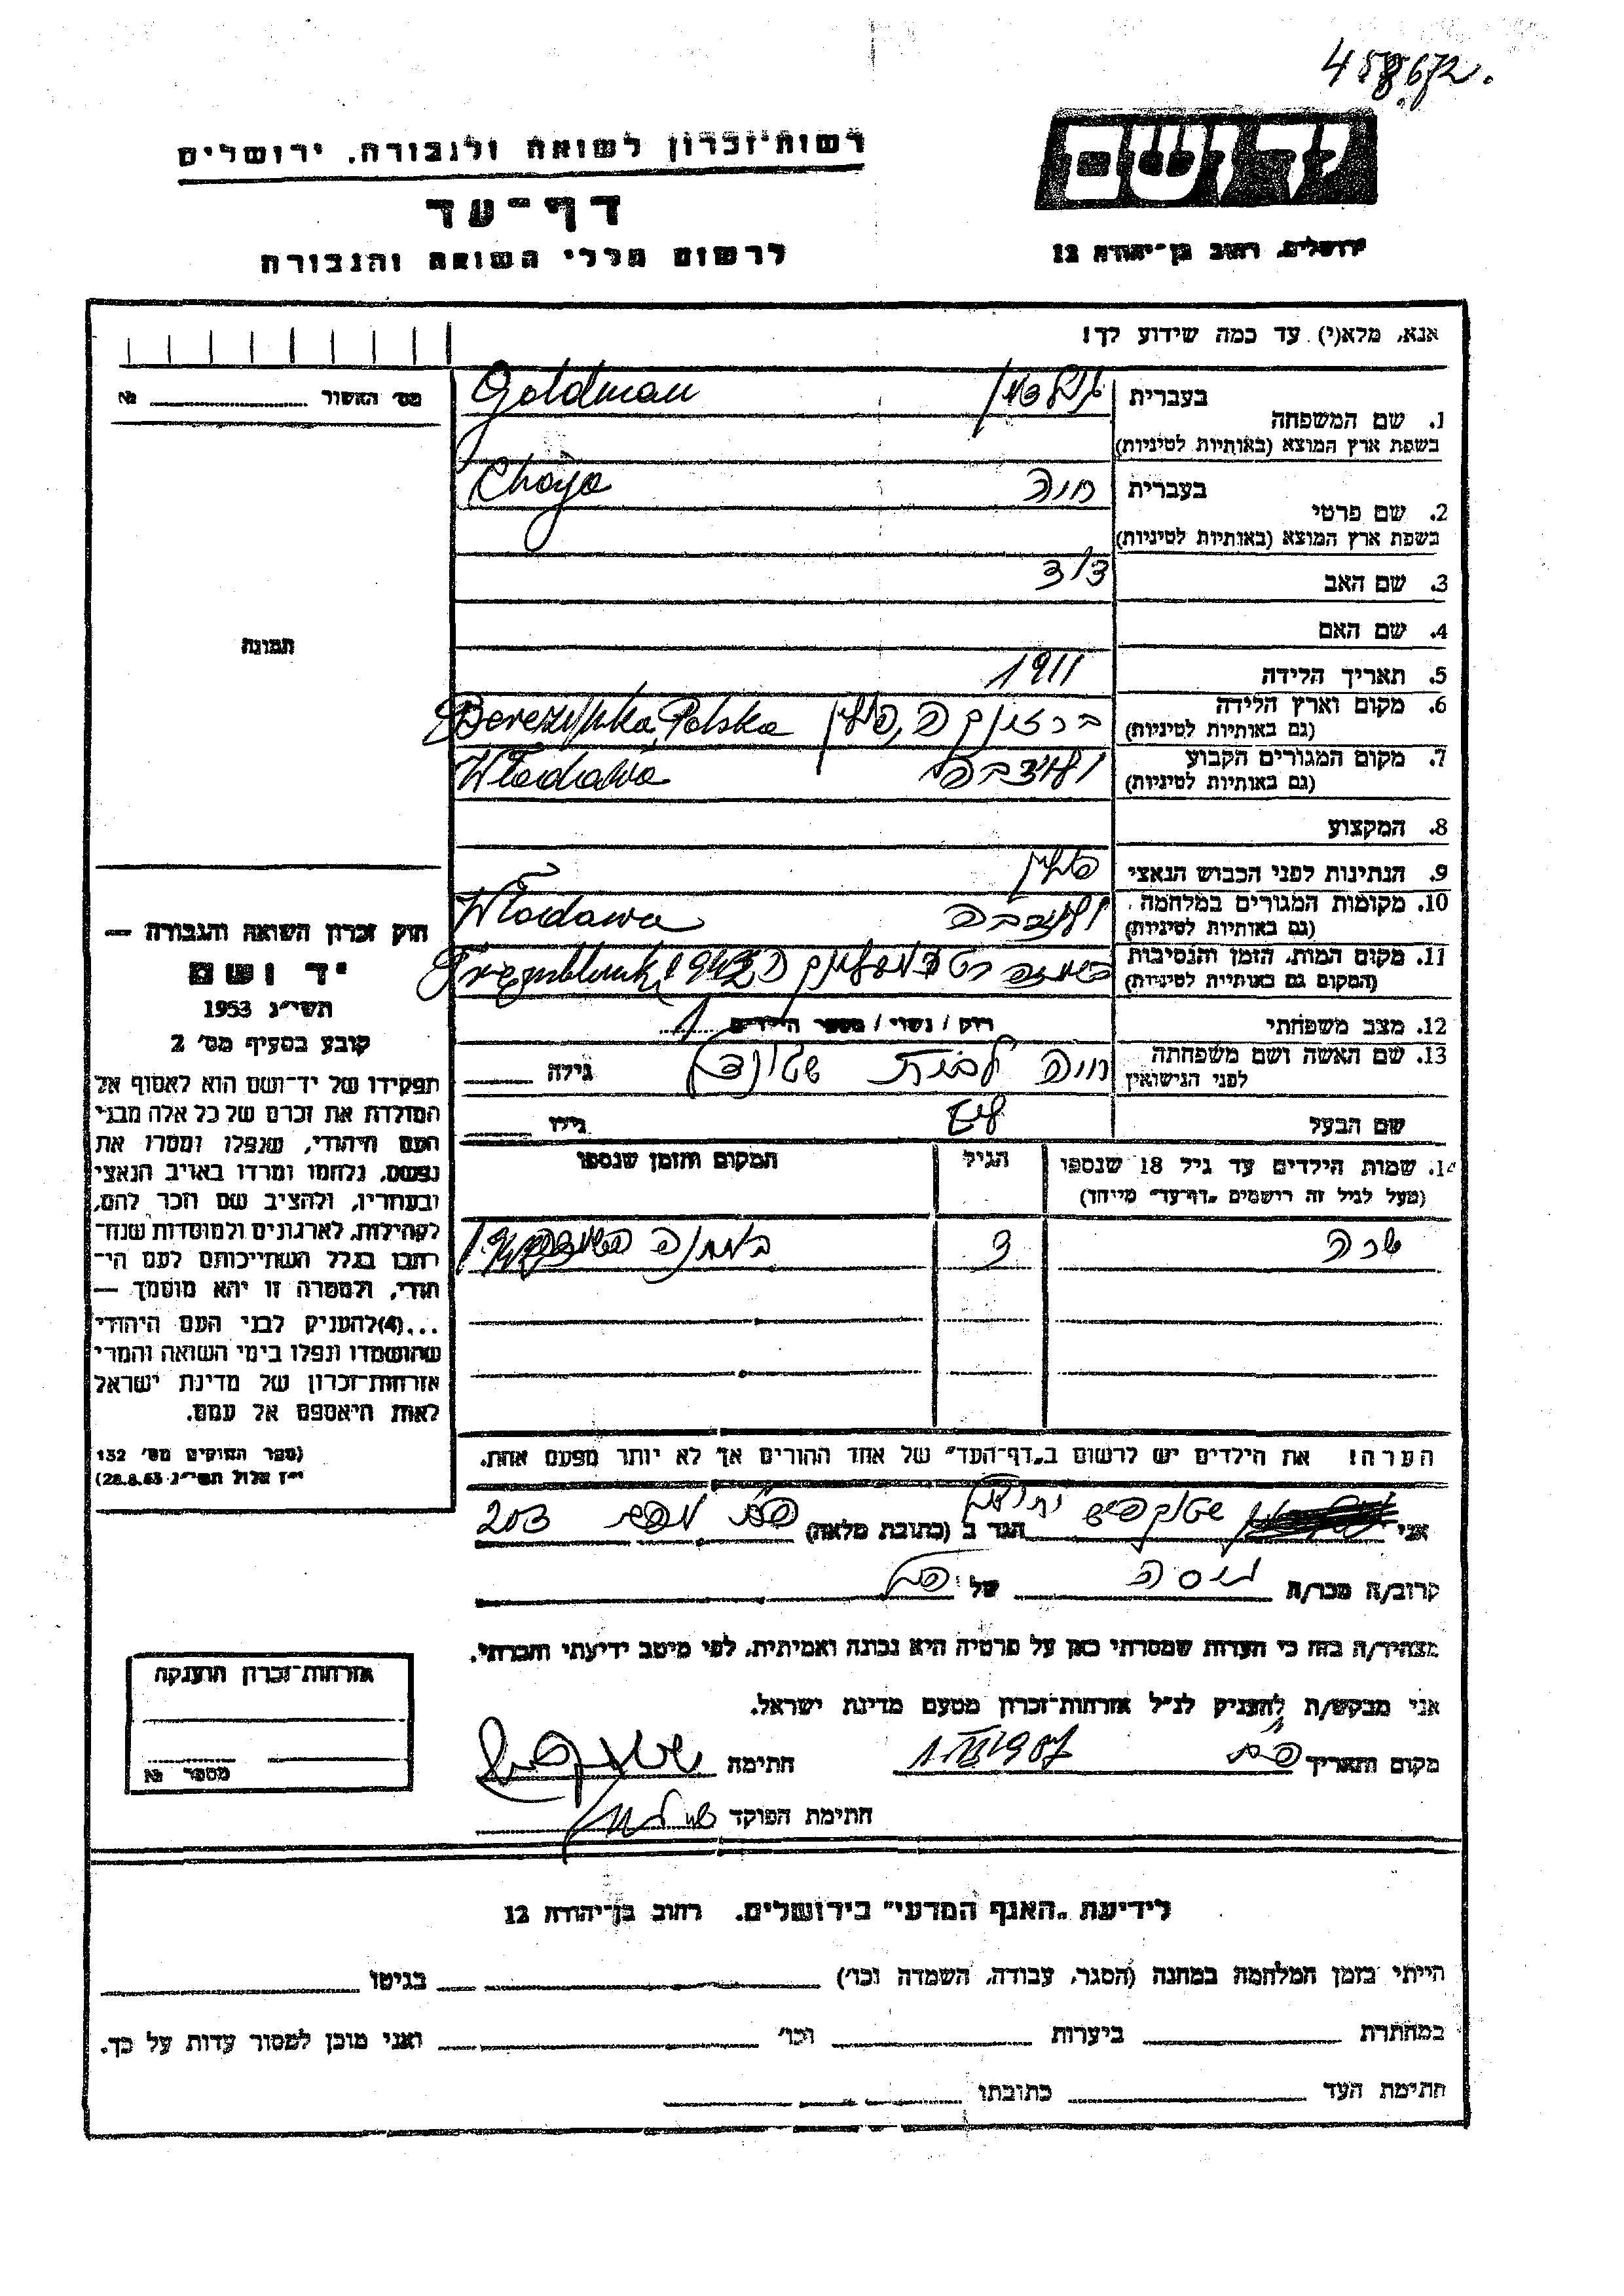 458672.
רשות־זכרון לשואה ולגבורה. ירושלים
יד ושם
דף־עד
לרשום חללי השואה והגבורה
ירושלים, רחוב בן־יהודה 12
אנא, מלא(י) עד כמה שידוע לך!
מס׳ האשור № 
1. שם המשפחה בעברית גולדמן Goldman
בשפת ארץ המוצא (באותיות לטיניות)
2. שם פרטי בעברית חיה Chaja
בשפת ארץ המוצא (באותיות לטיניות)
3. שם האב דוד
4. שם האם
תמונה
5. תאריך הלידה 1911
6. מקום וארץ הלידה פולין Polska
(גם באותיות לטיניות)
7. מקום המגורים הקבוע Włodawa
(גם באותיות לטיניות)
8. המקצוע
9. הנתינות לפני הכבוש הנאצי פולין
10. מקומות המגורים במלחמה Włodawa
(גם באותיות לטיניות)
11. מקום המות, הזמן והנסיבות
(המקום גם באותיות לטיניות)
12. מצב משפחתי רווק / נשוי / מספר הילדים 1
13. שם האשה ושם משפחתה חיה לבית גילה
לפני הנישואין
שם הבעל גילו
14. שמות הילדים עד גיל 18 שנספו הגיל המקום והזמן שנספו
(מעל לגיל זה רישמים „דף־עד” מיוחד)
שרה 3 במחנה
הערה! את הילדים יש לרשום ב„דף־העד” של אחד ההורים אך לא יותר מפעם אחת.
חוק זכרון השואה והגבורה —
יד ושם
תשי״ג 1953
קובע בסעיף מס׳ 2
תפקידו של יד־ושם הוא לאסוף אל
המולדת את זכרם של כל אלה מבני
העם היהודי, שנפלו ומסרו את
נפשם, נלחמו ומרדו באויב הנאצי
ובעוזריו, ולהציב שם וזכר להם,
לקהילות, לארגונים ולמוסדות שנח־
רבו בגלל השתייכותם לעם הי־
הודי, ולמטרה זו יהא מוסמך —
...(4)להעניק לבני העם היהודי
שהושמדו ונפלו בימי השואה והמרי
אזרחות־זכרון של מדינת ישראל
לאות היאספם אל עמם.
(ספר החוקים מס׳ 132
י״ז אלול תשי״ג 28.8.53)
אני שטוקפיש הגר ב (כתובת מלאה) 203
קרוב/ה מכר/ה גיסה של
מצהיר/ה בזה כי העדות שמסרתי כאן על פרטיה היא נכונה ואמיתית, לפי מיטב ידיעתי והכרתי.
אני מבקש/ת להעניק לנ״ל אזרחות־זכרון מטעם מדינת ישראל.
מקום ותאריך חתימה שטוקפיש
חתימת הפוקד
אזרחות־זכרון הוענקה
מספר №
לידיעת „האגף המדעי” בירושלים. רחוב בן־יהודה 12
הייתי בזמן המלחמה במחנה (הסגר, עבודה, השמדה וכו׳) בגיטו
במחתרת ביערות וכו׳ ואני מוכן למסור עדות על כך.
חתימת העד כתובתו